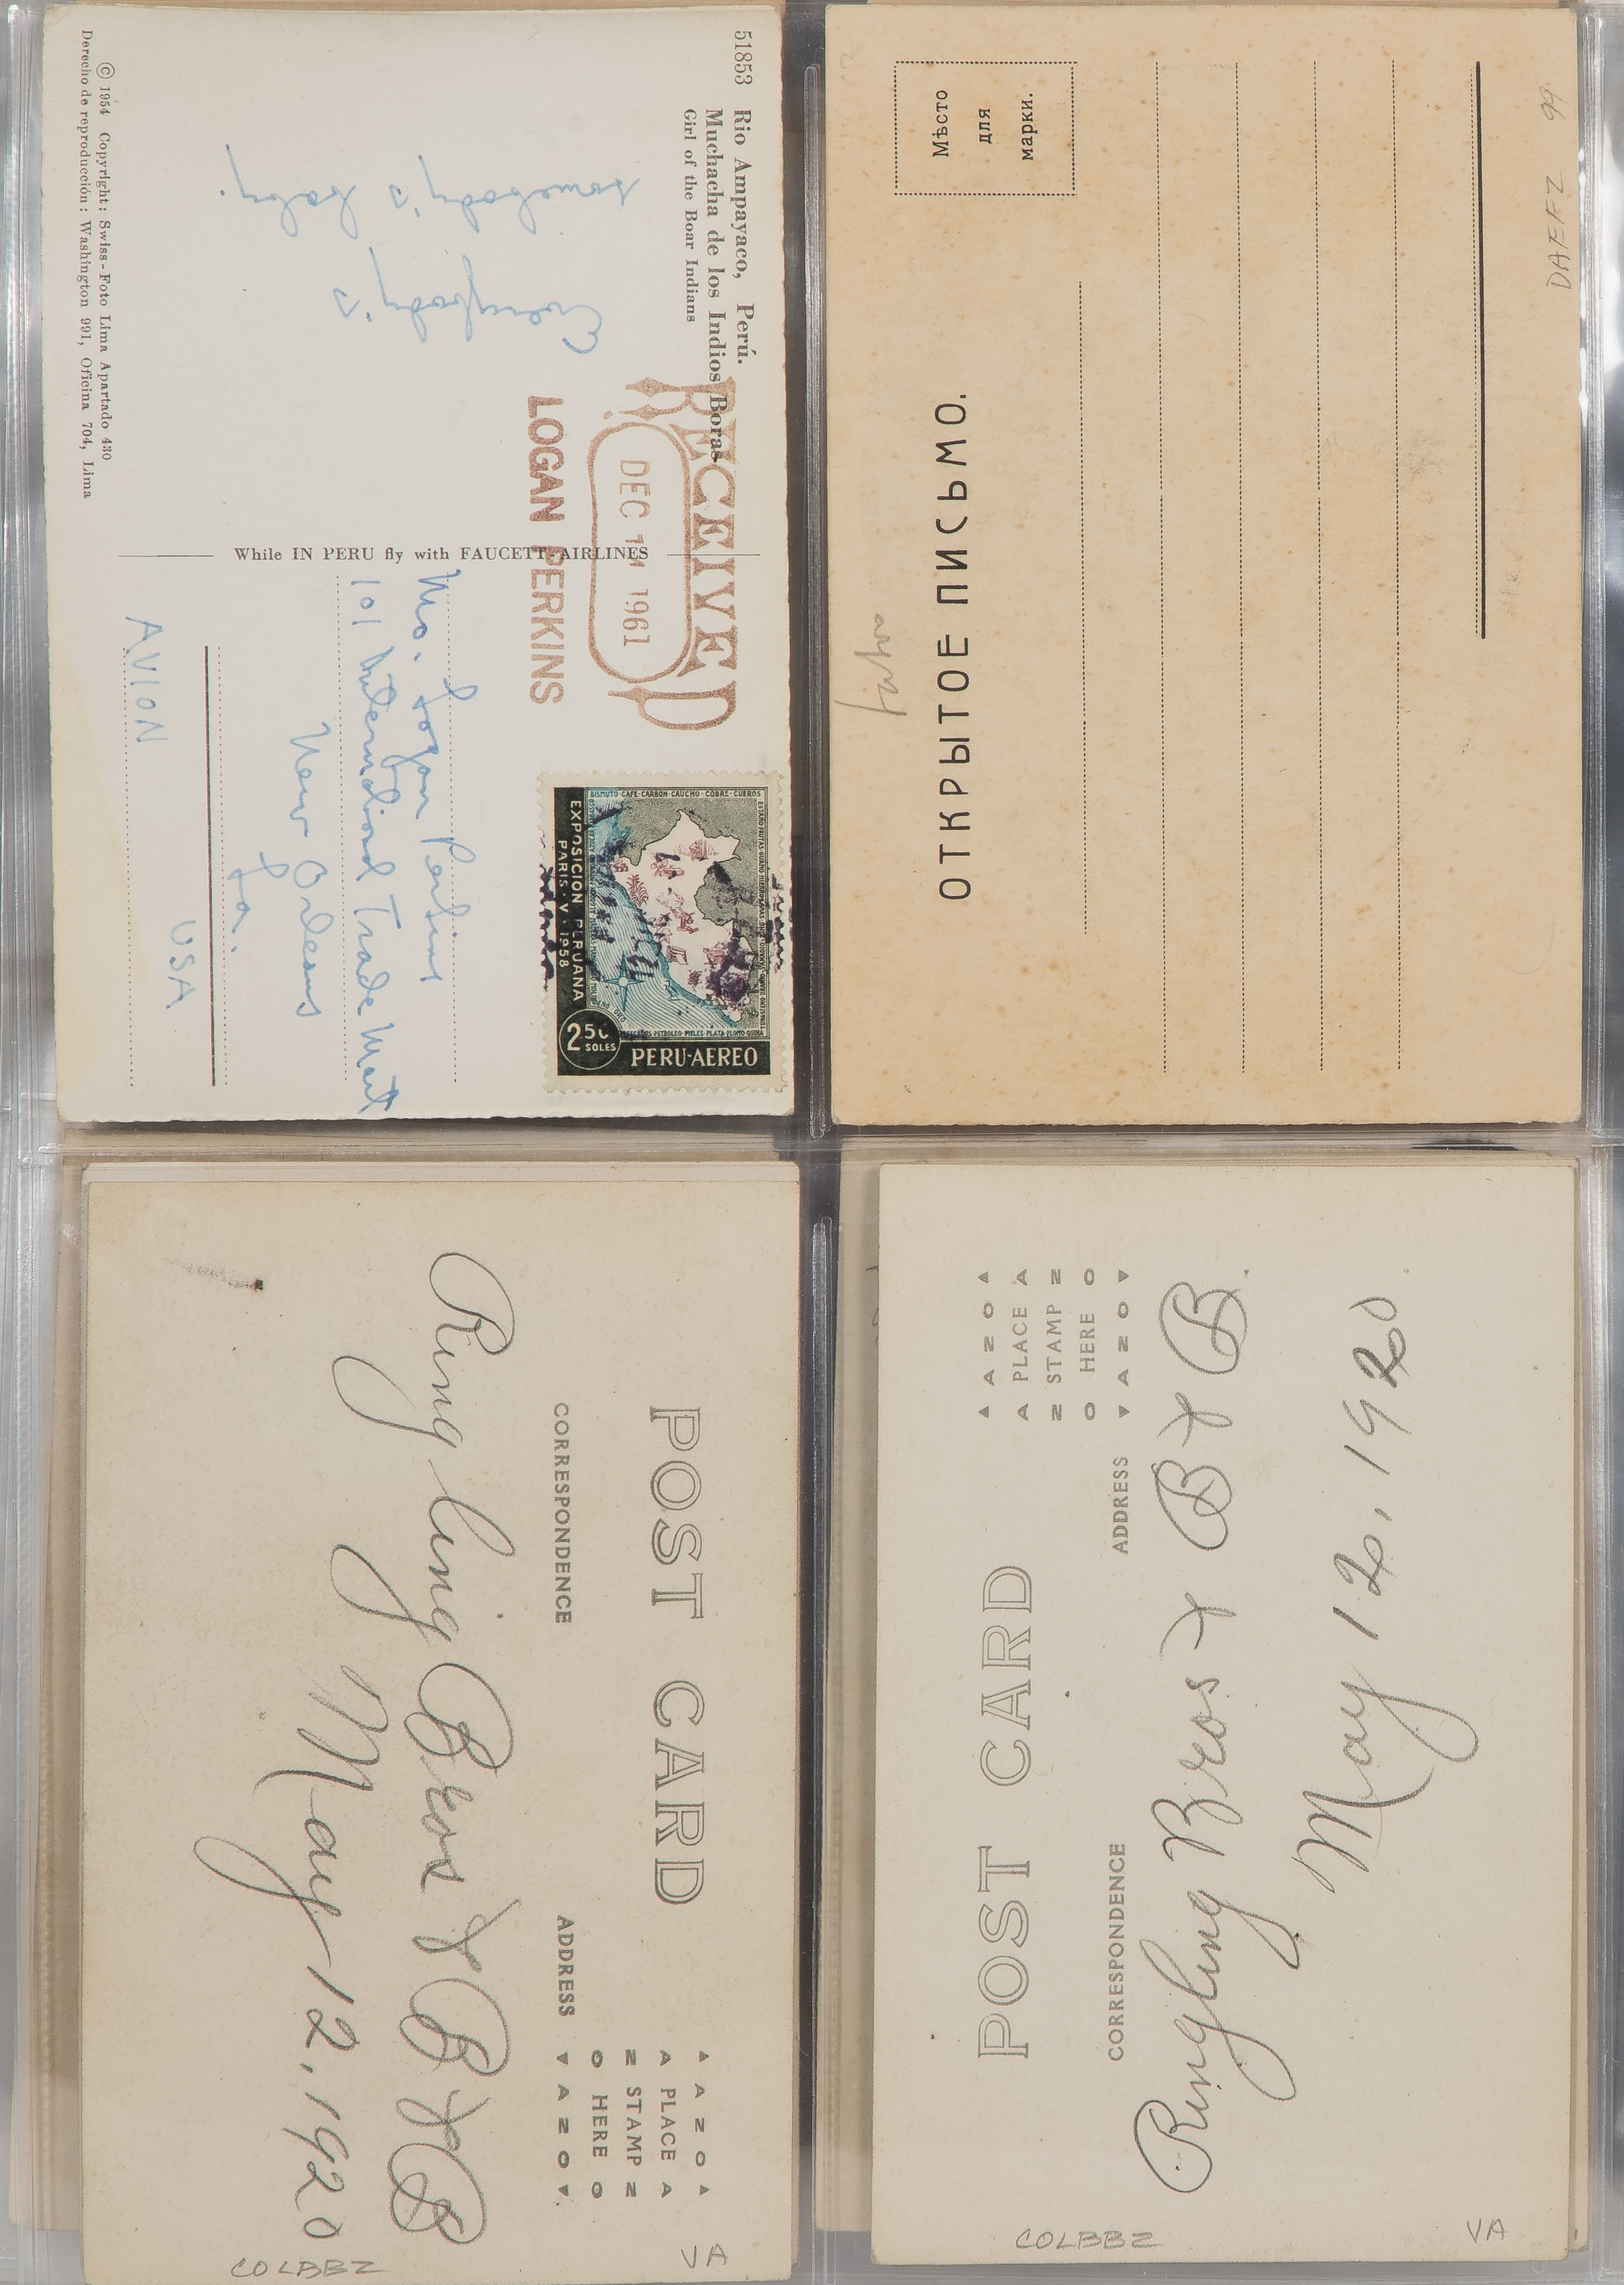 51853 Rio Ampayaco, Perú.
Muchacha de los Indios Boras
Girl of the Boar Indians
Everybody's
somebody's baby.
© 1954 Copyright: Swiss-Foto Lima Apartado 430
Derecho de reproducción: Washington 991, Oficina 704, Lima
While IN PERU fly with FAUCETT AIRLINES
RECEIVED
DEC 14 1961
LOGAN PERKINS
BISMUTO·CAFE·CARBON·CAUCHO·COBRE·CUEROS
EXPOSICION PERUANA
PARIS·V·1958
2.50
SOLES
PERU-AEREO
Mr. Logan Perkins
101 International Trade Mart
New Orleans
La.
USA
AVION
Мѣсто
для
марки.
ОТКРЫТОЕ ПИСЬМО.
DAEFZ 99
POST CARD
CORRESPONDENCE
ADDRESS
AZO
A PLACE A
Z STAMP Z
O HERE O
AZO
Ringling Bros & B & B
May 12, 1920
COLBBZ
VA
POST CARD
CORRESPONDENCE
ADDRESS
AZO
A PLACE A
Z STAMP Z
O HERE O
AZO
Ringling Bros & B & B.
May 12, 1920
COLBBZ
VA